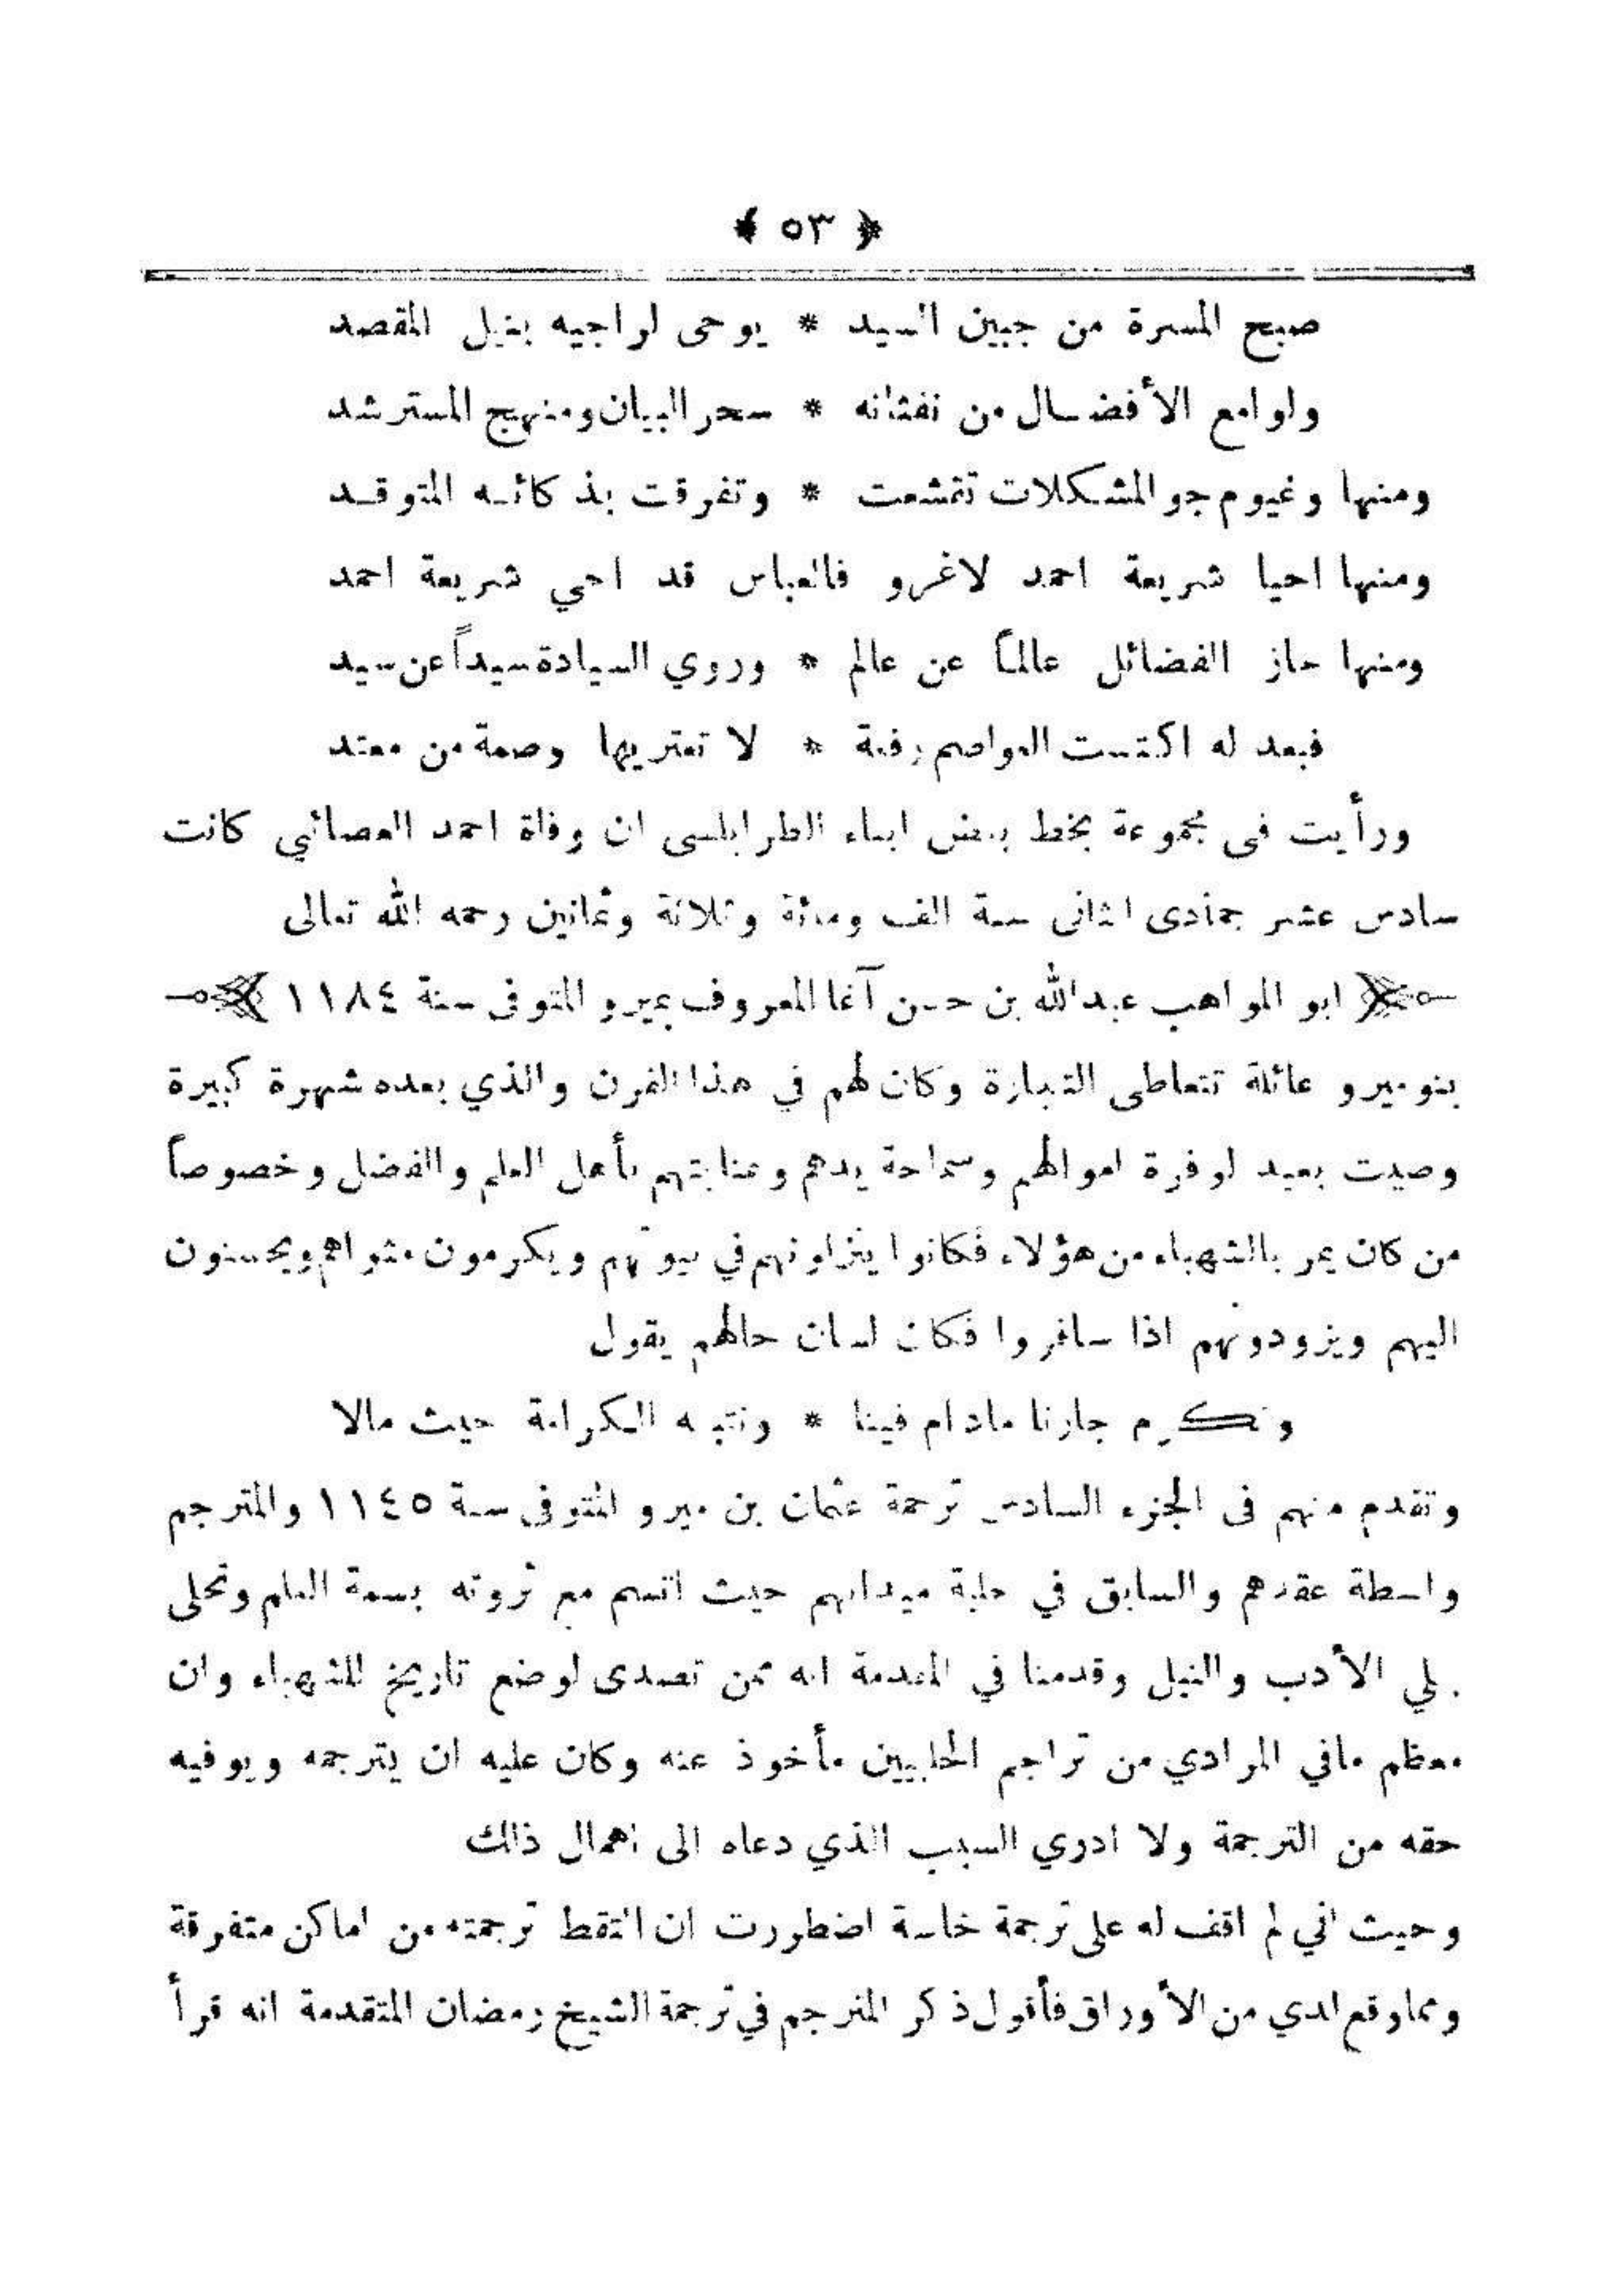 ﴿ ٥٣ ﴾
صبح المسرة من جبين السيد * يوحى لراجيه بنيل المقصد
ولوامع الأفضال من نفثاته * سحر البيان ومنهج المسترشد
ومنها وغيوم جو المشكلات تقشعت * وتفرقت بذكائه المتوقد
ومنها احيا شريعة احمد لاغرو فالعباس قد احي شريعة احمد
ومنها حاز الفضائل عالماً عن عالم * وروي السيادة سيداً عن سيد
فبعد له اكتست العواصم رفعة * لا تعتريها وصمة من معتد
ورأيت فى مجموعة بخط بعض ابناء الطرابلسى ان وفاة احمد العصائبي كانت
سادس عشر جمادى الثانى سنة الف ومائة وثلاثة وثمانين رحمه الله تعالى
ابو المواهب عبدالله بن حسن آغا المعروف بميرو المتوفى سنة ١١٨٤
بنو ميرو عائلة تتعاطى التجارة وكان لهم في هذا القرن والذي بعده شهرة كبيرة
وصيت بعيد لوفرة اموالهم وسماحة يدهم وعنايتهم بأهل العلم والفضل وخصوصاً
من كان يمر بالشهباء من هؤلاء فكانوا ينزلونهم في بيوتهم ويكرمون مثواهم ويحسنون
اليهم ويزودونهم اذا سافروا فكان لسان حالهم يقول
ونكرم جارنا مادام فينا * ونتبعه الكرامة حيث مالا
وتقدم منهم فى الجزء السادس ترجمة عثمان بن ميرو المتوفى سنة ١١٤٥ والمترجم
واسطة عقدهم والسابق في حلبة ميدانهم حيث اتسم مع ثروته بسمة العلم وتحلى
بلي الأدب والنبل وقدمنا في المقدمة انه ممن تصدى لوضع تاريخ للشهباء وان
معظم مافي المرادي من تراجم الحلبيين مأخوذ عنه وكان عليه ان يترجمه ويوفيه
حقه من الترجمة ولا ادري السبب الذي دعاه الى اهمال ذلك
وحيث اني لم اقف له على ترجمة خاصة اضطررت ان التقط ترجمته من اماكن متفرقة
ومما وقع لدي من الأوراق فأقول ذكر المترجم في ترجمة الشيخ رمضان المتقدمة انه قرأ